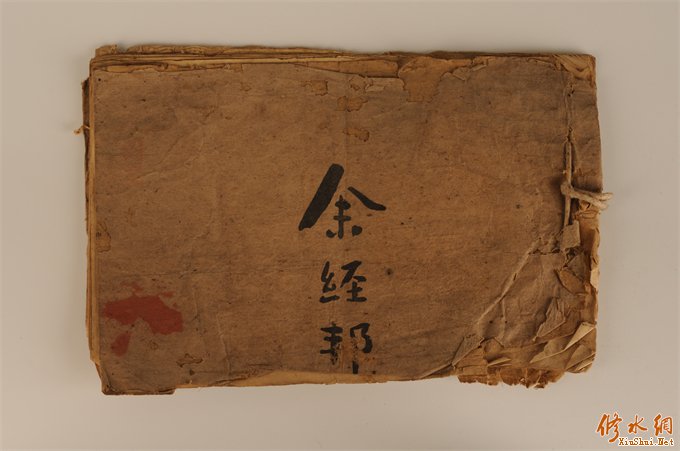 余
经
邦
修水網
XiuShui.Net